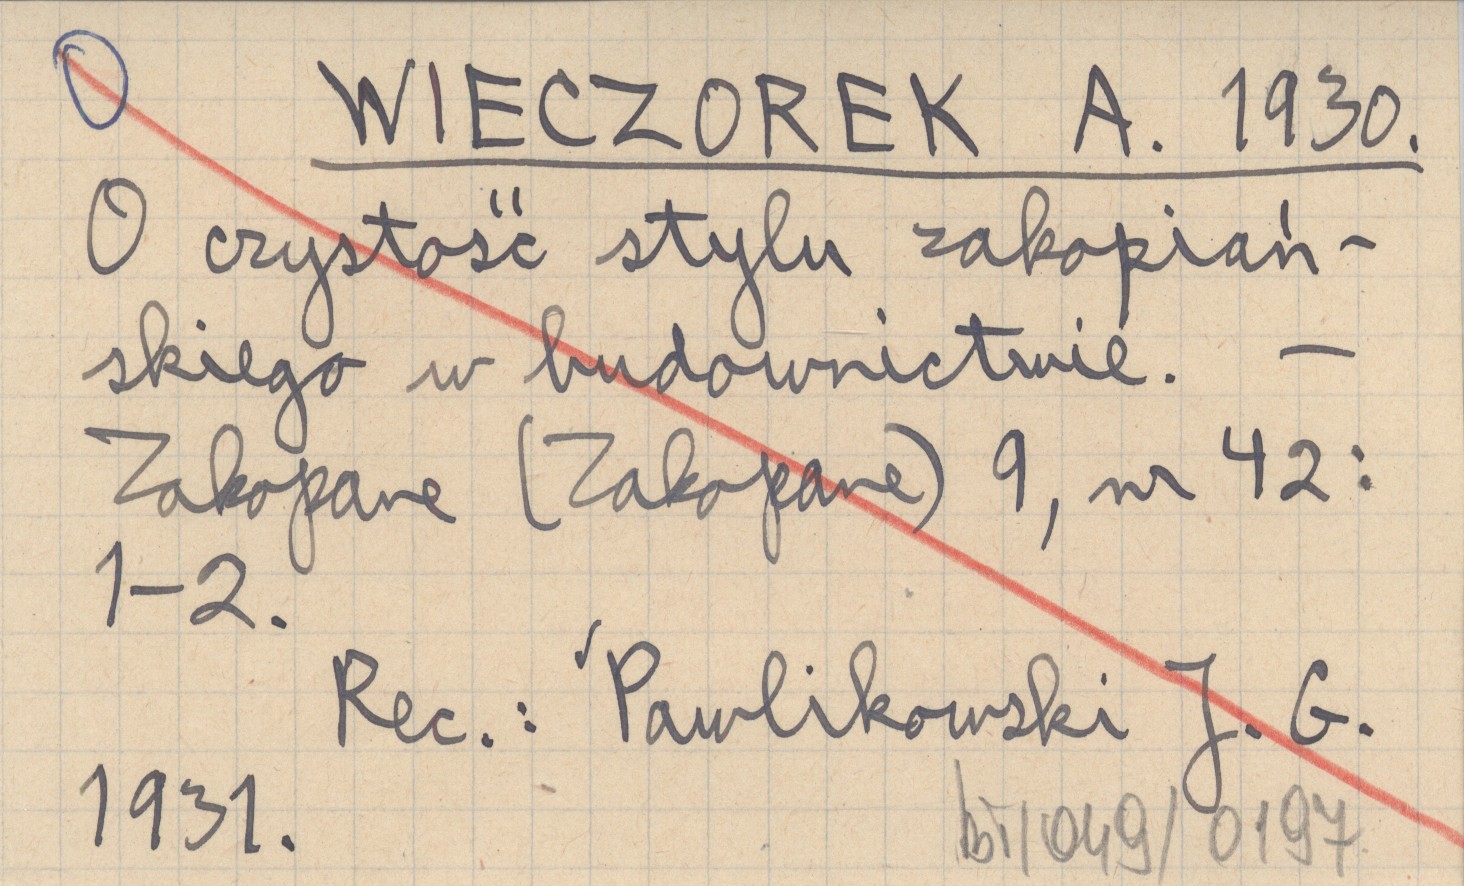 WIECZOREK A. 1930.
O czystość stylu zakopiań-
skiego w budownictwie. —
Zakopane (Zakopane) 9, nr 42:
1-2.
Rec.: ✓Pawlikowski J. G.
1931.
bi/049/0197